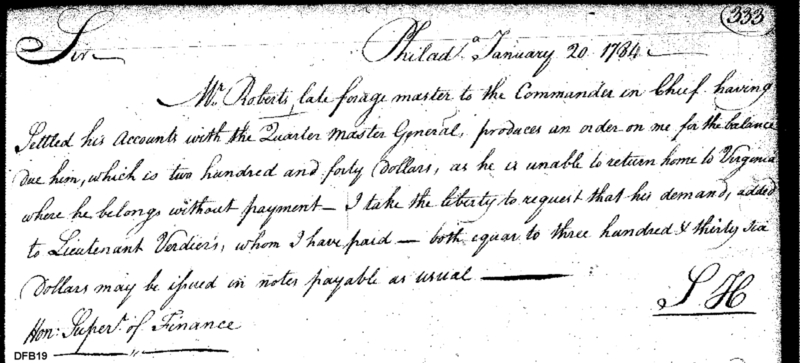 333
Sir Philad.a January 20 1784
Mr. Roberts, late forage master to the Commander in Chief having
Settled his Accounts with the Quarter Master General, produces an order on me for the balance
due him, which is two hundred and forty Dollars, as he is unable to return home to Virginia
where he belongs without payment — I take the liberty to request that his demand, added
to Lieutenant Verdier's, whom I have paid — both equal to three hundred & thirty six
Dollars may be issued in notes payable as usual —
S H
Hon: Super.t of Finance
DFB19